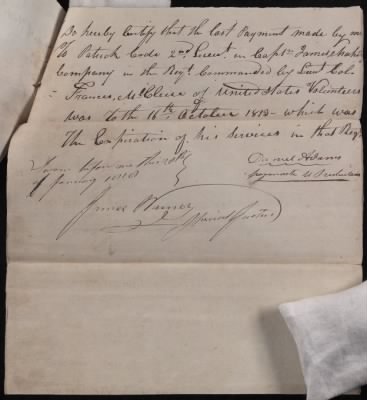 Do hereby Certify that the Last Payment made by me
To Patrick 2nd Lieut. in Capt. James
Company in the Regt. Commanded by Lieut Col.
Francis McClure of United States Volunteers
was To the 16th October 1813 - which was
The Expiration of his Services in that Regt
Sworn before me this
of January
Daniel Adams
James